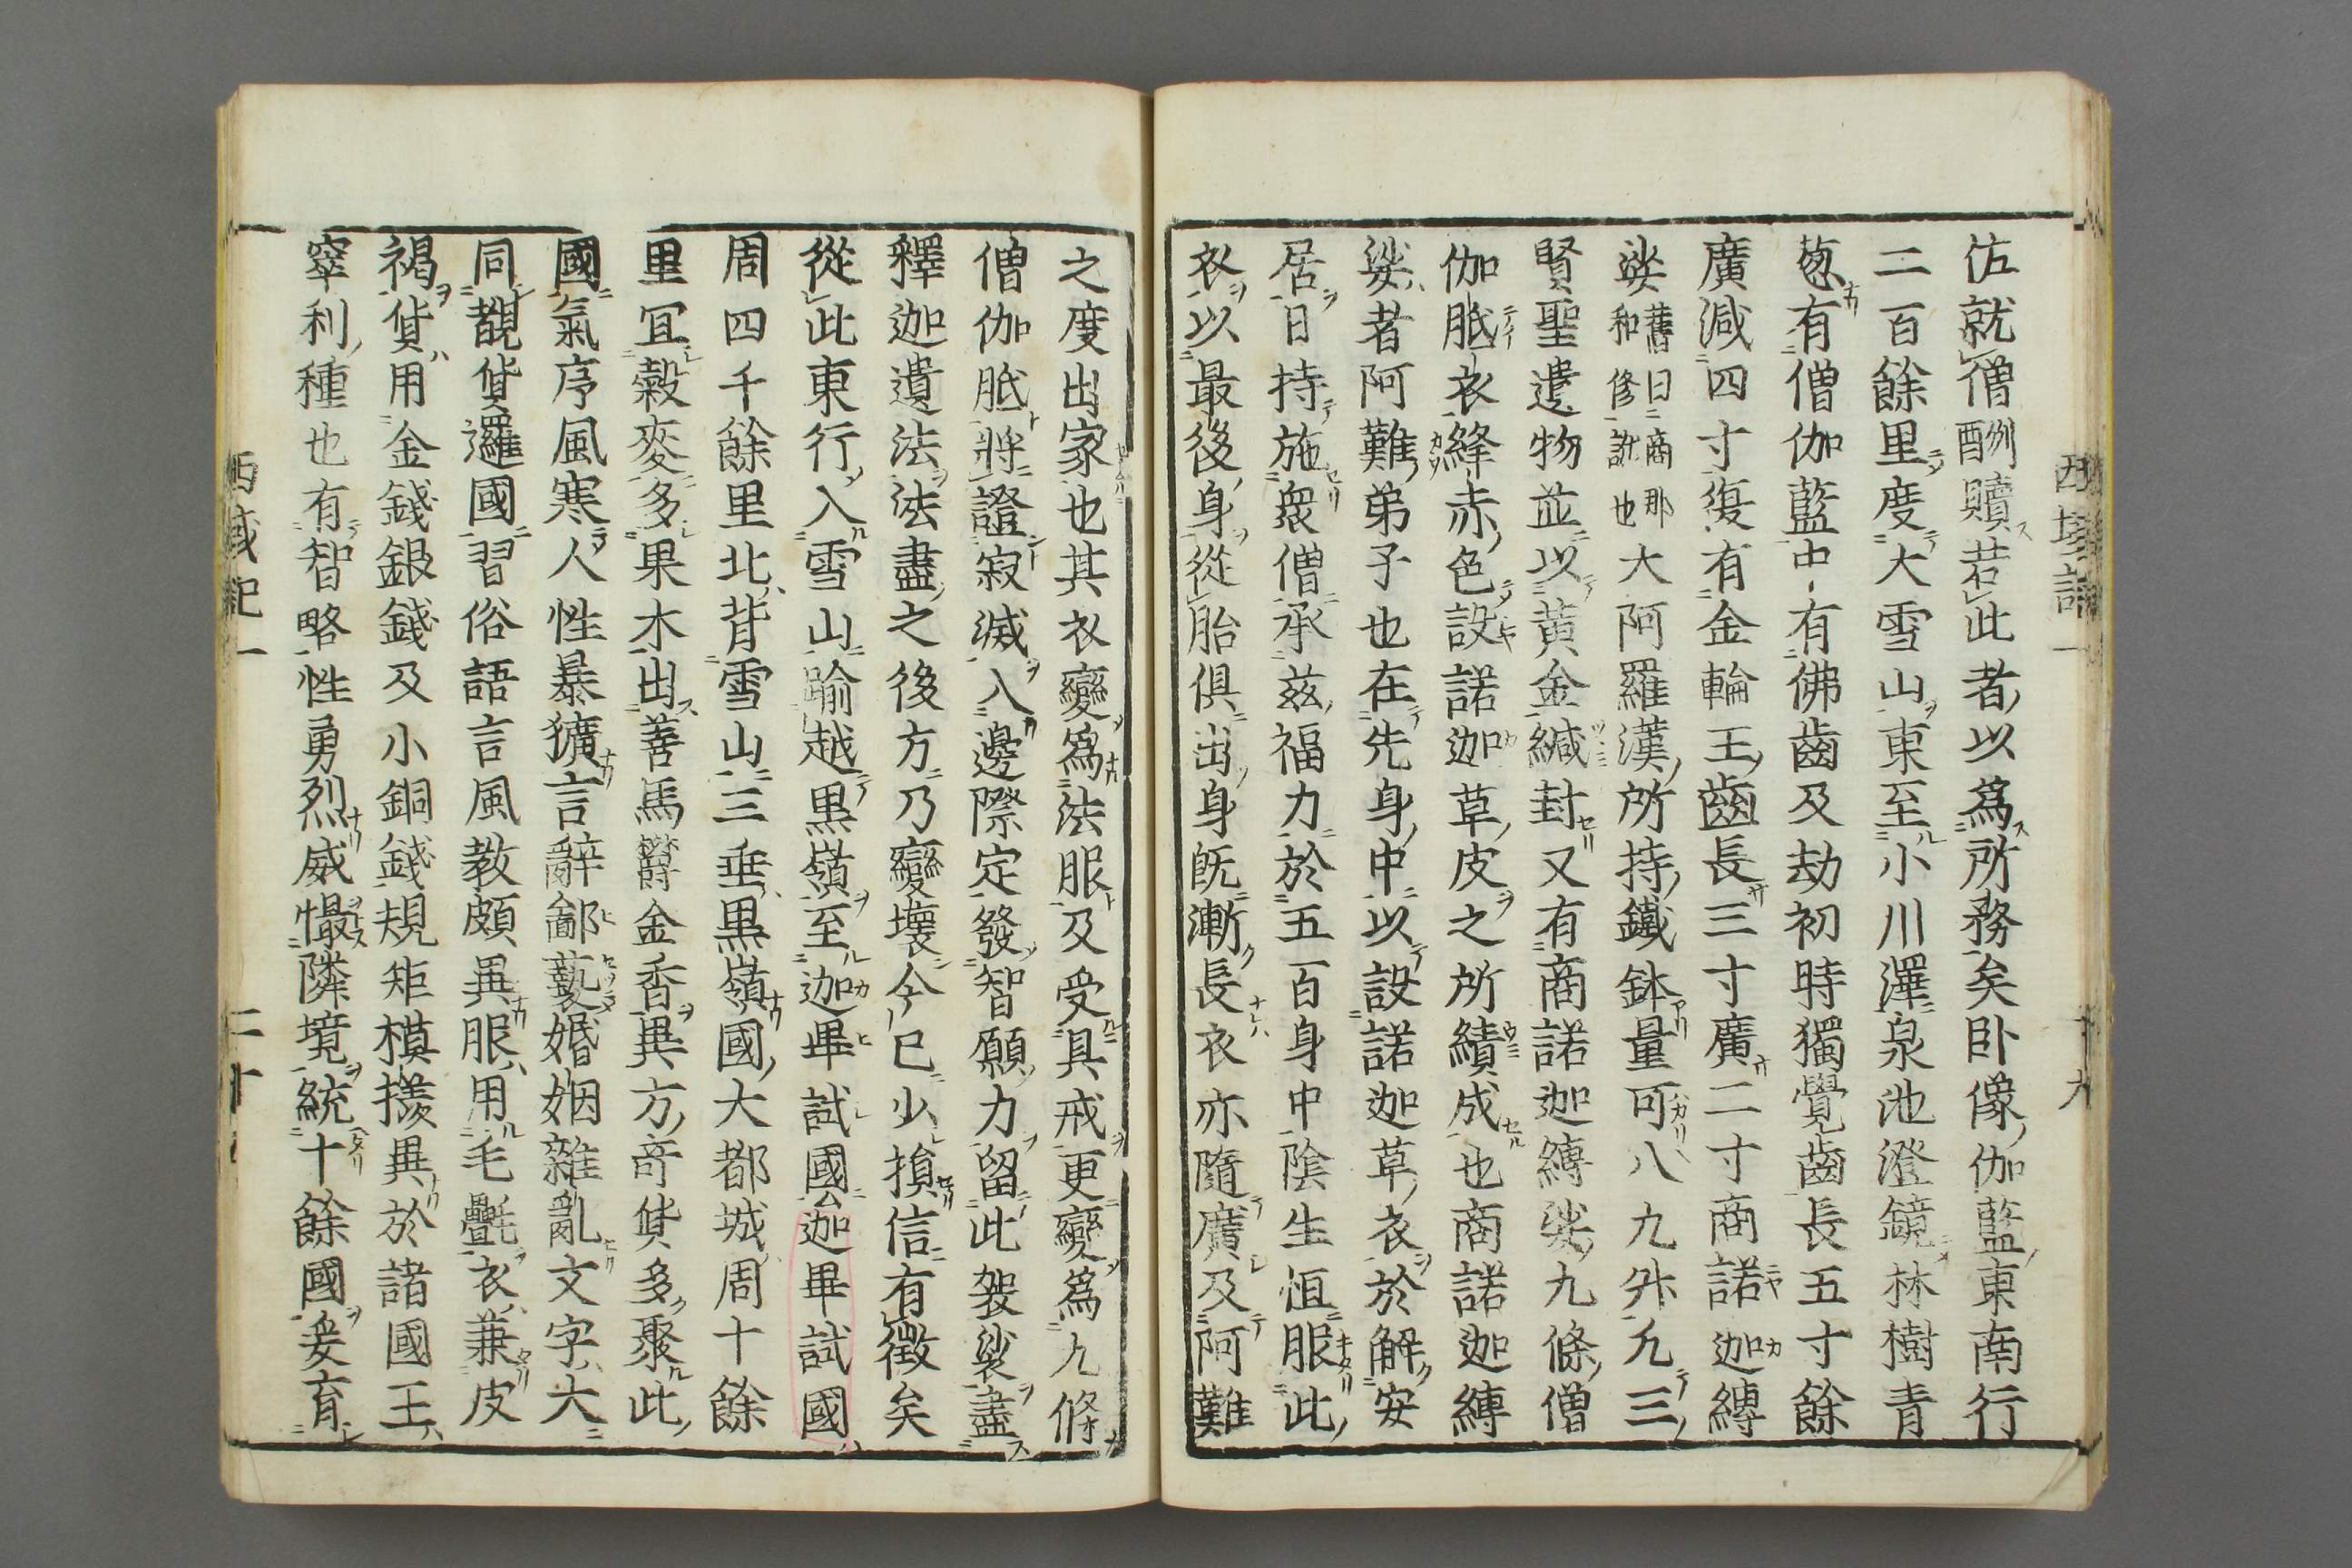 西域記一 十九
佐就僧酬贖若此者以爲所務矣卧像伽藍東南行
二百餘里度大雪山東至小川澤泉池澄鏡林樹青
葱有僧伽藍中有佛齒及劫初時獨覺齒長五寸餘
廣減四寸復有金輪王齒長三寸廣二寸商諾迦縛
娑舊曰商那和修訛也大阿羅漢所持鐵鉢量可八九升凡三
賢聖遺物並以黃金緘封又有商諾迦縛娑九條僧
伽胝衣絳赤色設諾迦草皮之所績成也商諾迦縛
娑者阿難弟子也在先身中以設諾迦草衣於解安
居日持施衆僧承茲福力於五百身中陰生恒服此
衣以最後身從胎俱出身既漸長衣亦隨廣及阿難
之度出家也其衣變爲法服及受具戒更變爲九條
僧伽胝將證寂滅入邊際定發智願力留此袈裟盡
釋迦遺法法盡之後方乃變壞今已少損信有徵矣
從此東行入雪山踰越黒嶺至迦畢試國迦畢試國
周四千餘里北背雪山三垂黒嶺國大都城周十餘
里宜穀麥多果木出善馬鬱金香異方奇貨多聚此
國氣序風寒人性暴獷言辭鄙褻婚姻雜亂文字大
同覩貨邏國習俗語言風教頗異服用毛氎衣兼皮
褐貨用金錢銀錢及小銅錢規矩模樣異於諸國王
窣利種也有智略性勇烈威懾隣境統十餘國愛育
西域記一 二十